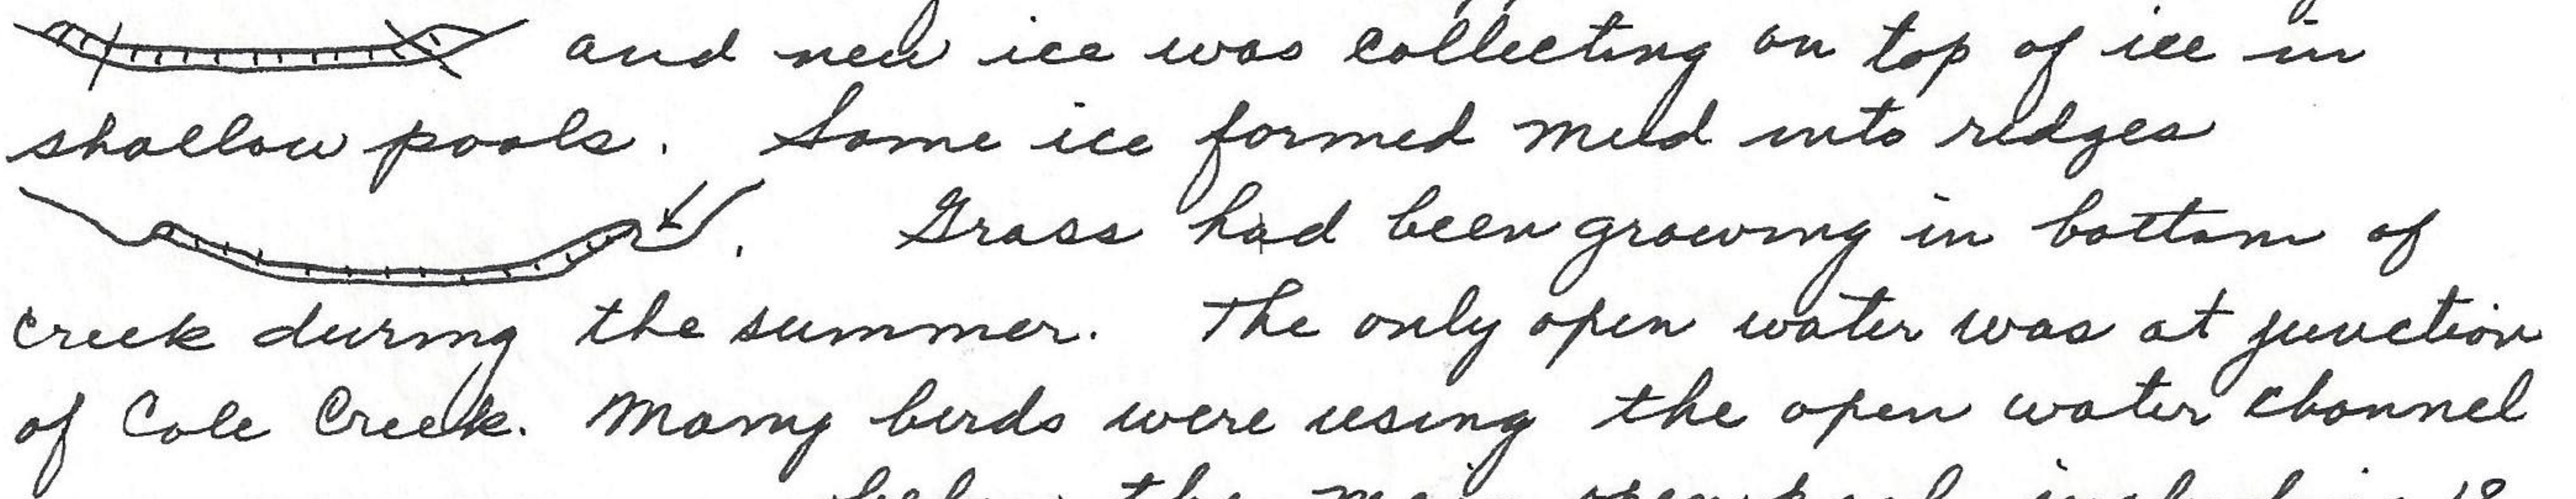 and new ice was collecting on top of ice in
shallow pools. Some ice formed mud into ridges
. Grass had been growing in bottom of
creek during the summer. The only open water was at junction
of Cole Creek. Many birds were using the open water channel